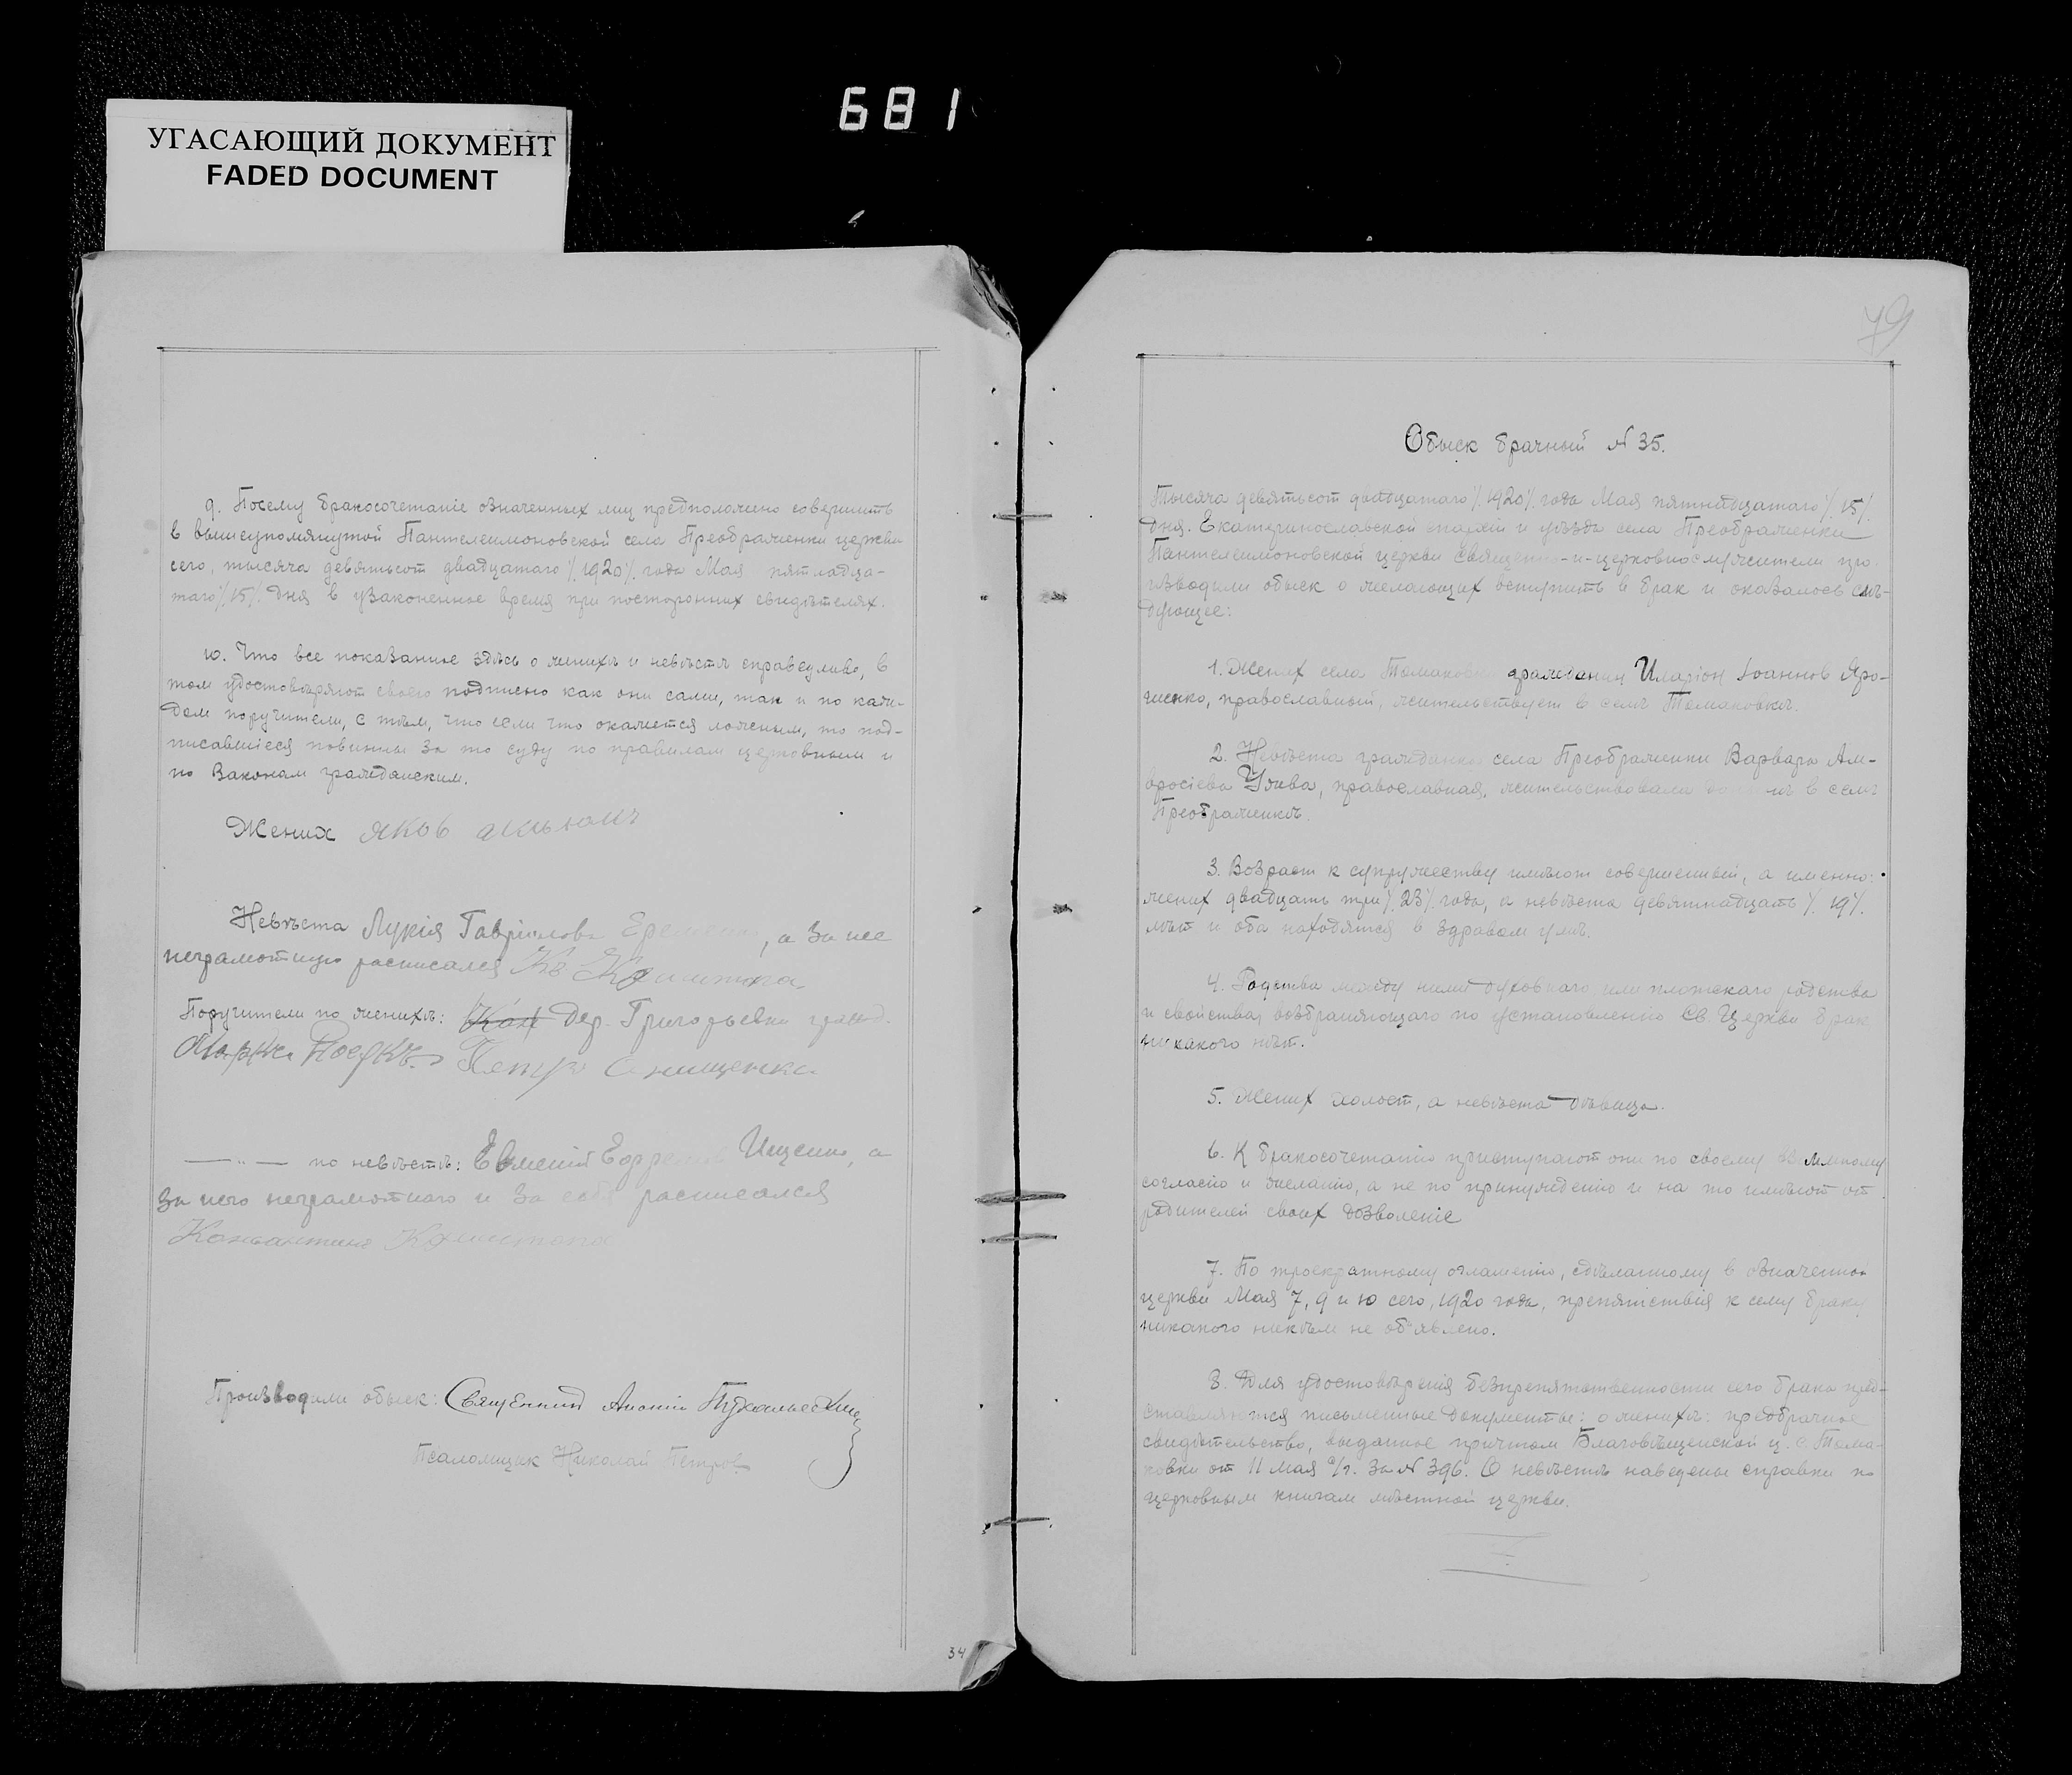 681
УГАСАЮЩИЙ ДОКУМЕНТ
FADED DOCUMENT
9. Посему бракосочетаніе означенных лиц предположено совершить
в вышеупомянутой Пантелеимоновской села Преображенки церкви
сего, тысяча девятьсот двадцатаго /1920/ года Мая пятнадца-
таго /15/ дня в узаконенное время при посторонних свидѣтелях.
10. Что все показанное здѣсь о женихѣ и невѣстѣ справедливо, в
том удостовѣряют своею подписью как они сами, так и по каж-
дом поручители, с тѣм, что если что окажется ложным, то под-
писавшіеся повинны за то суду по правилам церковным и
по законам гражданским.
Жених Яков
Невѣста Лукія Гавріилова, а за нее
неграмотную расписался
Поручители по женихѣ: дер. Григорьевки
Марко Петр Онищенко
— " — по невѣстѣ: Ищенко, а
за него неграмотнаго и за себя расписался
Константин
Производили обыск: Священник
Псаломщик Николай Петров
34
79
Обыск брачный № 35.
Тысяча девятьсот двадцатаго /1920/ года Мая пятнадцатаго /15/
дня. Екатеринославской епархіи и уѣзда села Преображенки
Пантелеимоновской церкви священно-и-церковнослужители про-
изводили обыск о желающих вступить в брак и оказалось слѣ-
дующее:
1. Жених села Томаковки гражданин Иларіон Іоаннов Яро-
шенко, православный, жительствует в селѣ Томаковкѣ.
2. Невѣста гражданка села Преображенки Варвара Ам-
вросіева, православная, жительствовала в селѣ
Преображенкѣ.
3. Возраст к супружеству имѣют совершенный, а именно:
жених двадцать три /23/ года, а невѣста девятнадцать /19/
лѣт и оба находятся в здравом умѣ.
4. Родства между ними духовнаго или плотскаго родства
и свойства, возбраняющаго по установленію Св. Церкви брак,
никакого нѣт.
5. Жених холост, а невѣста дѣвица.
6. К бракосочетанію приступают они по своему взаимному
согласію и желанію, а не по принужденію и на то имѣют от
родителей своих дозволеніе
7. По троекратному оглашенію, сдѣланному в означенной
церкви Мая 7, 9 и 10 сего, 1920 года, препятствія к сему браку
никакого никѣм не объявлено.
8. Для удостовѣренія безпрепятственности сего брака пред-
ставляются письменные документы: о женихѣ: предбрачное
свидѣтельство, выданное причтом Благовѣщенской ц. с. Тома-
ковки от 11 мая с/г. за № 396. О невѣстѣ наведены справки по
церковным книгам мѣстной церкви.